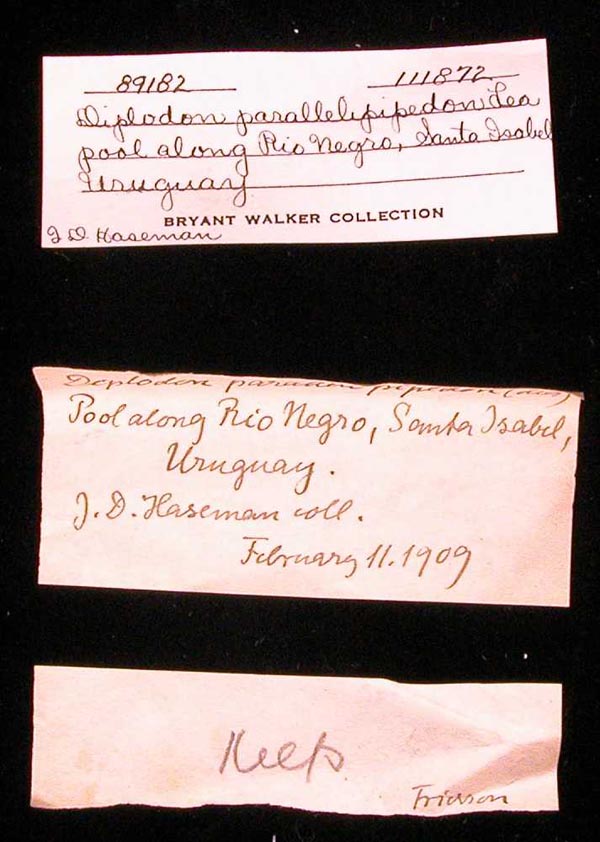 89182 111872
Diplodon parallelipipedon Lea
pool along Rio Negro, Santa Isabel
Uruguay
BRYANT WALKER COLLECTION
J D Haseman
Pool along Rio Negro, Santa Isabel,
Uruguay.
J. D. Haseman coll.
February 11. 1909
Keep
Frierson